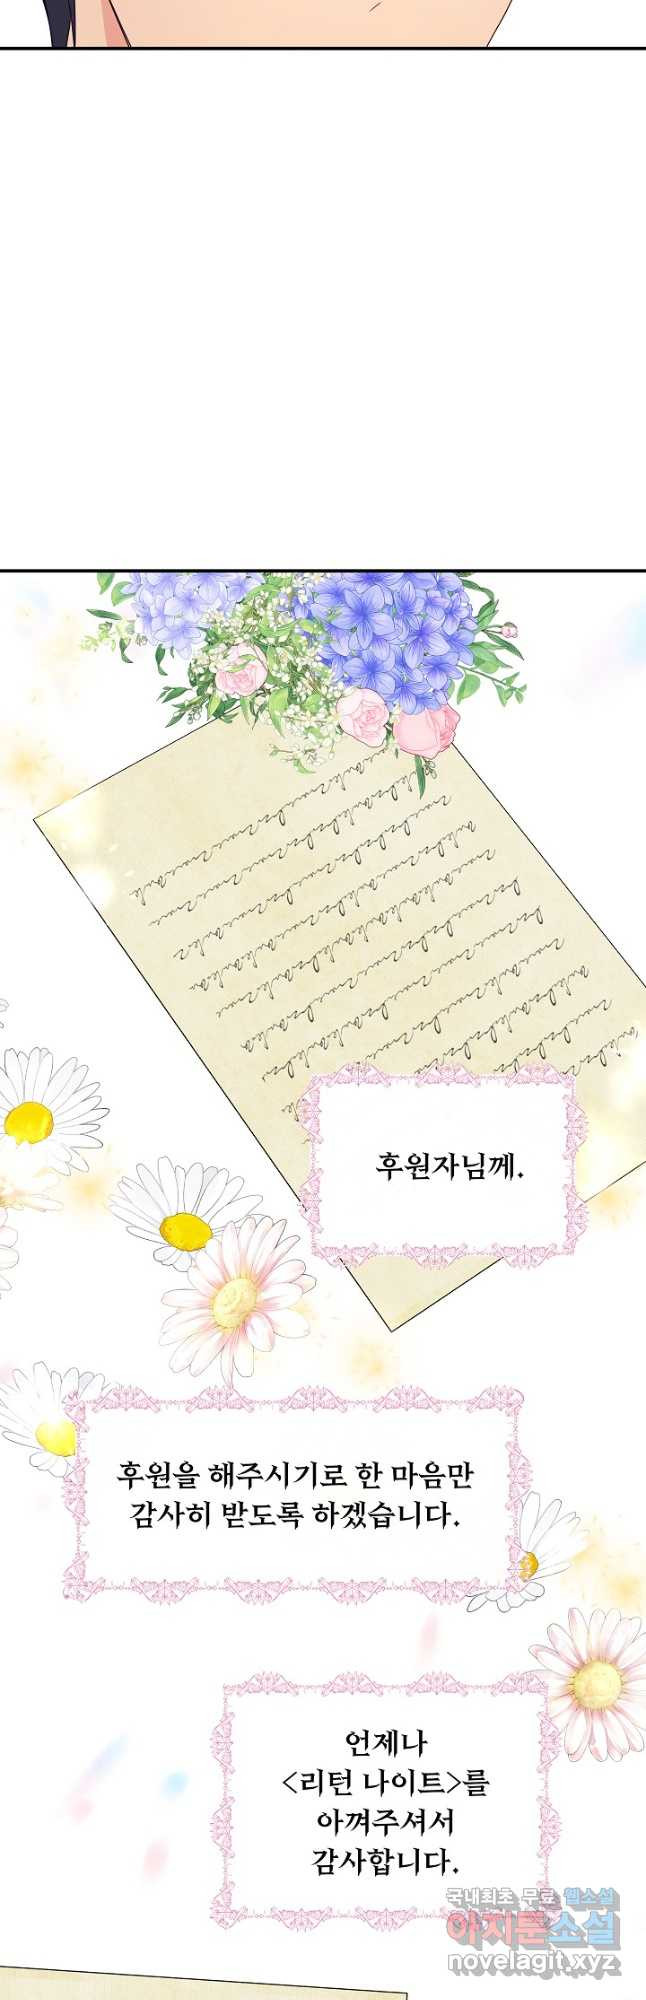 후원자님께.
후원을 해주시기로 한 마음만
감사히 받도록 하겠습니다.
언제나
<리턴 나이트>를
아껴주셔서
감사합니다.
국내최초 무료 웹소설
아지툰소설
novelagit.xyz